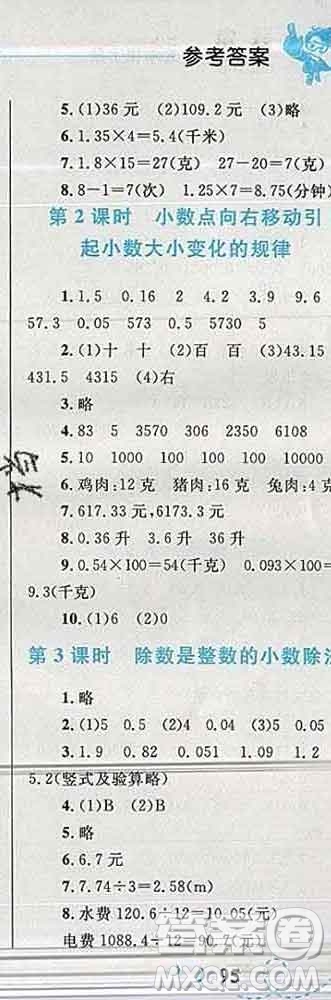 参考答案
5.(1)36元 (2)109.2元 (3)略
6.1.35×4=5.4(千米)
7.1.8×15=27(克) 27-20=7(克)
8.8-1=7(次) 1.25×7=8.75(分钟)
第2课时 小数点向右移动引
起小数大小变化的规律
1.1.5 0.16 2 4.2 3.9 9.6
57.3 0.05 573 0.5 5730 5
2.(1)十 十 (2)百 百 (3)43.15
431.5 4315 (4)右
3.略
4.83 5 3570 306 2350 6108
5.10 1000 100 100 10 10000
6.鸡肉:12克 猪肉:16克 兔肉:4克
7.617.33元,6173.3元
8.0.36升 3.6升 36升
9.0.54×100=54(千克) 0.093×100=
9.3(千克)
10.(1)6 (2)0
第3课时 除数是整数的小数除法
1.略
2.(1)5 0.5 (2)4 0.04 (3)5 0.05
3.1.9 0.82 0.051 1.09 0.13
5.2(竖式及验算略)
4.(1)B (2)B
5.略
6.6.7元
7.7.74÷3=2.58(m)
8.水费120.6÷12=10.05(元)
电费1088.4÷12=90.7(元)
95
答案